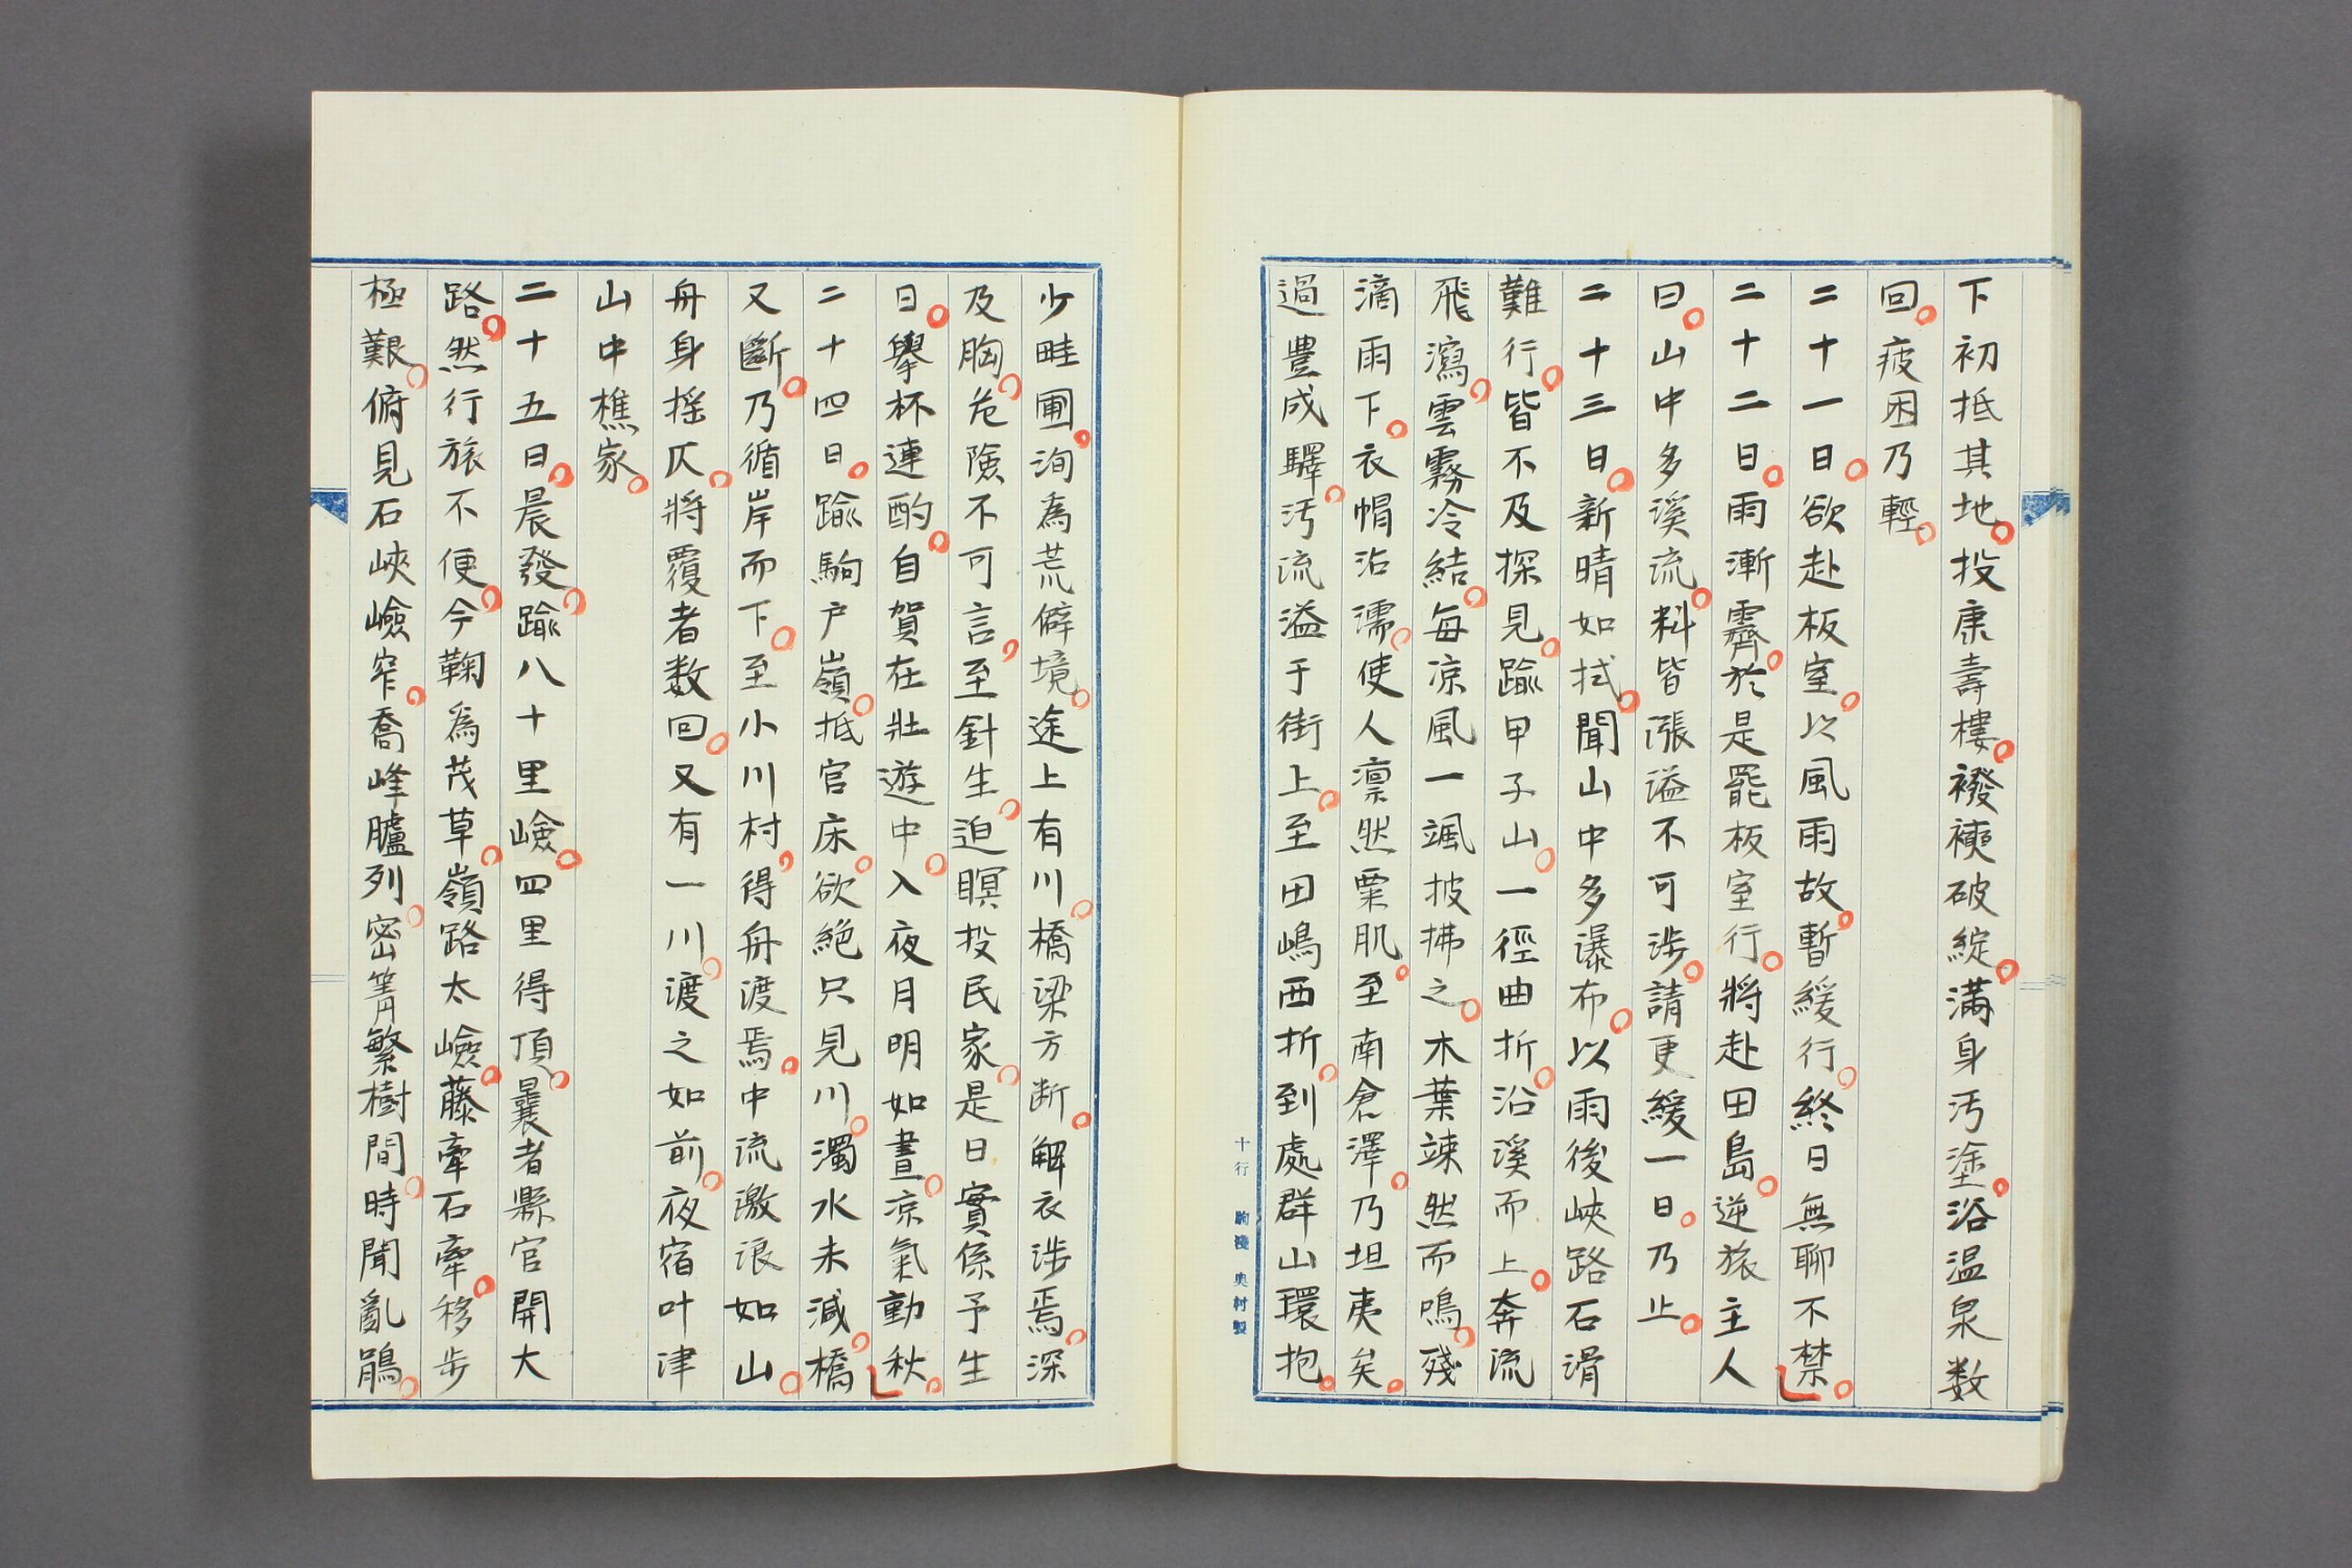 下初抵其地。投康壽樓。襏襫破綻。滿身汚塗。浴温泉数
回。疲困乃輕。
二十一日。欲赴板室。以風雨故。暫緩行。終日無聊不禁。
二十二日。雨漸霽。於是罷板室行。將赴田島。逆旅主人
曰。山中多溪流。料皆漲溢不可涉。請更緩一日。乃止。
二十三日。新晴如拭。聞山中多瀑布。以雨後峽路石滑
難行。皆不及探見。踰甲子山。一徑曲折。沿溪而上。奔流
飛瀉。雲霧冷結。每凉風一颯披拂之。木葉竦然而鳴。殘
滴雨下。衣帽沾濡。使人凛然粟肌。至南倉澤。乃坦夷矣。
過豊成驛。汚流溢于街上。至田嶋西折。到處群山環抱。
十行 駒淺 奥村製
少畦圃。洵為荒僻境。途上有川。橋梁方断。解衣涉焉。深
及胸。危險不可言。至針生。迫暝投民家。是日實係予生
日。擧杯連酌。自賀在壯遊中。入夜月明如晝。凉氣動秋。
二十四日。踰駒户嶺。抵官床。欲絶只見川。濁水未減。橋
又斷。乃循岸而下。至小川村。得舟渡焉。中流激浪如山。
舟身揺仄。將覆者数回。又有一川。渡之如前。夜宿叶津
山中樵家。
二十五日。晨發。踰八十里嶮。四里得頂。曩者縣官開大
路。然行旅不便。今鞠為茂草。嶺路太嶮。藤牽石牽。移步
極艱。俯見石峽嶮窄。喬峰臚列。密箐繁樹間。時聞亂鵑。